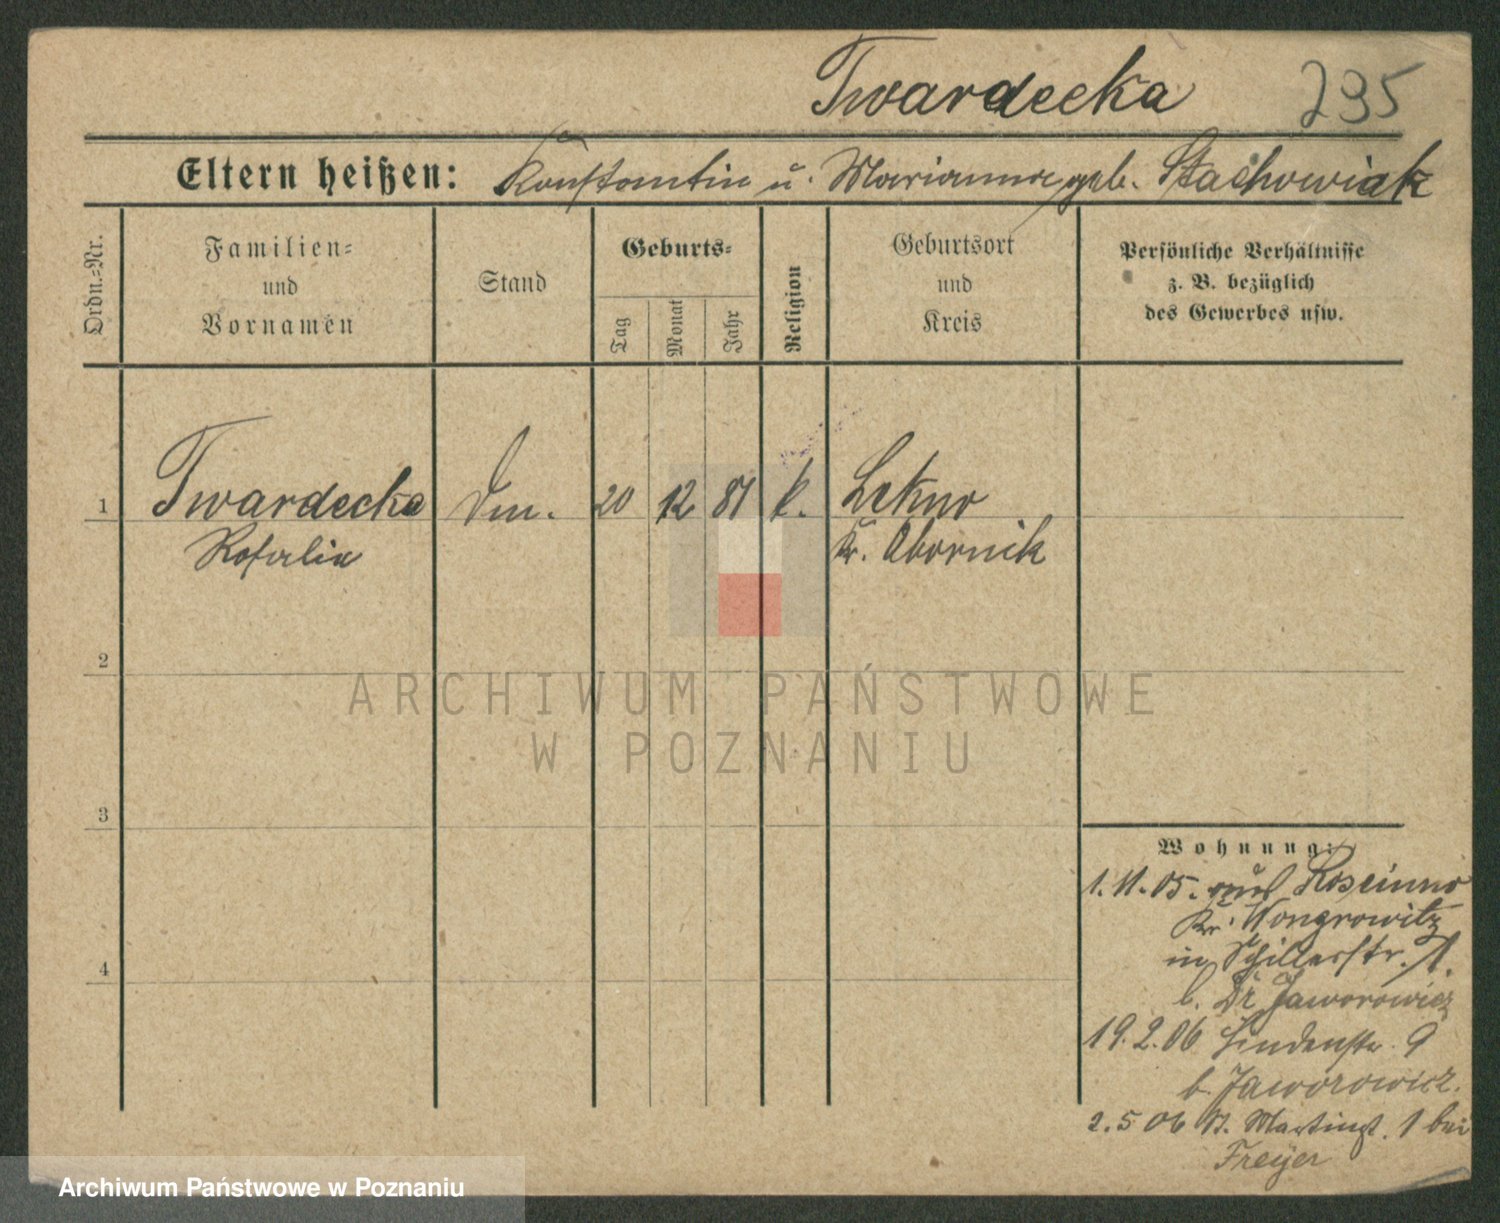 Twardecka 295
Eltern heißen: Konstantin u. Marianna geb. Stachowiak
Ordn.-Nr.
Familien- und Vornamen
Stand
Geburts-
Tag
Monat
Jahr
Religion
Geburtsort und Kreis
Persönliche Verhältnisse z. B. bezüglich des Gewerbes usw.
1 Twardecka 20 12 81 k. Lekno
Rosalia Kr. Obornik
2
3
4
Wohnung:
1.11.05. aus Roscinno
Kr. Wongrowitz
in Schillerstr. 1.
b. Dr Jaworowicz
19.2.06 Lindenstr. 9
b. Jaworowicz.
2.5 06 St. Martinst. 1 bei
Freyer
ARCHIWUM PAŃSTWOWE
W POZNANIU
Archiwum Państwowe w Poznaniu